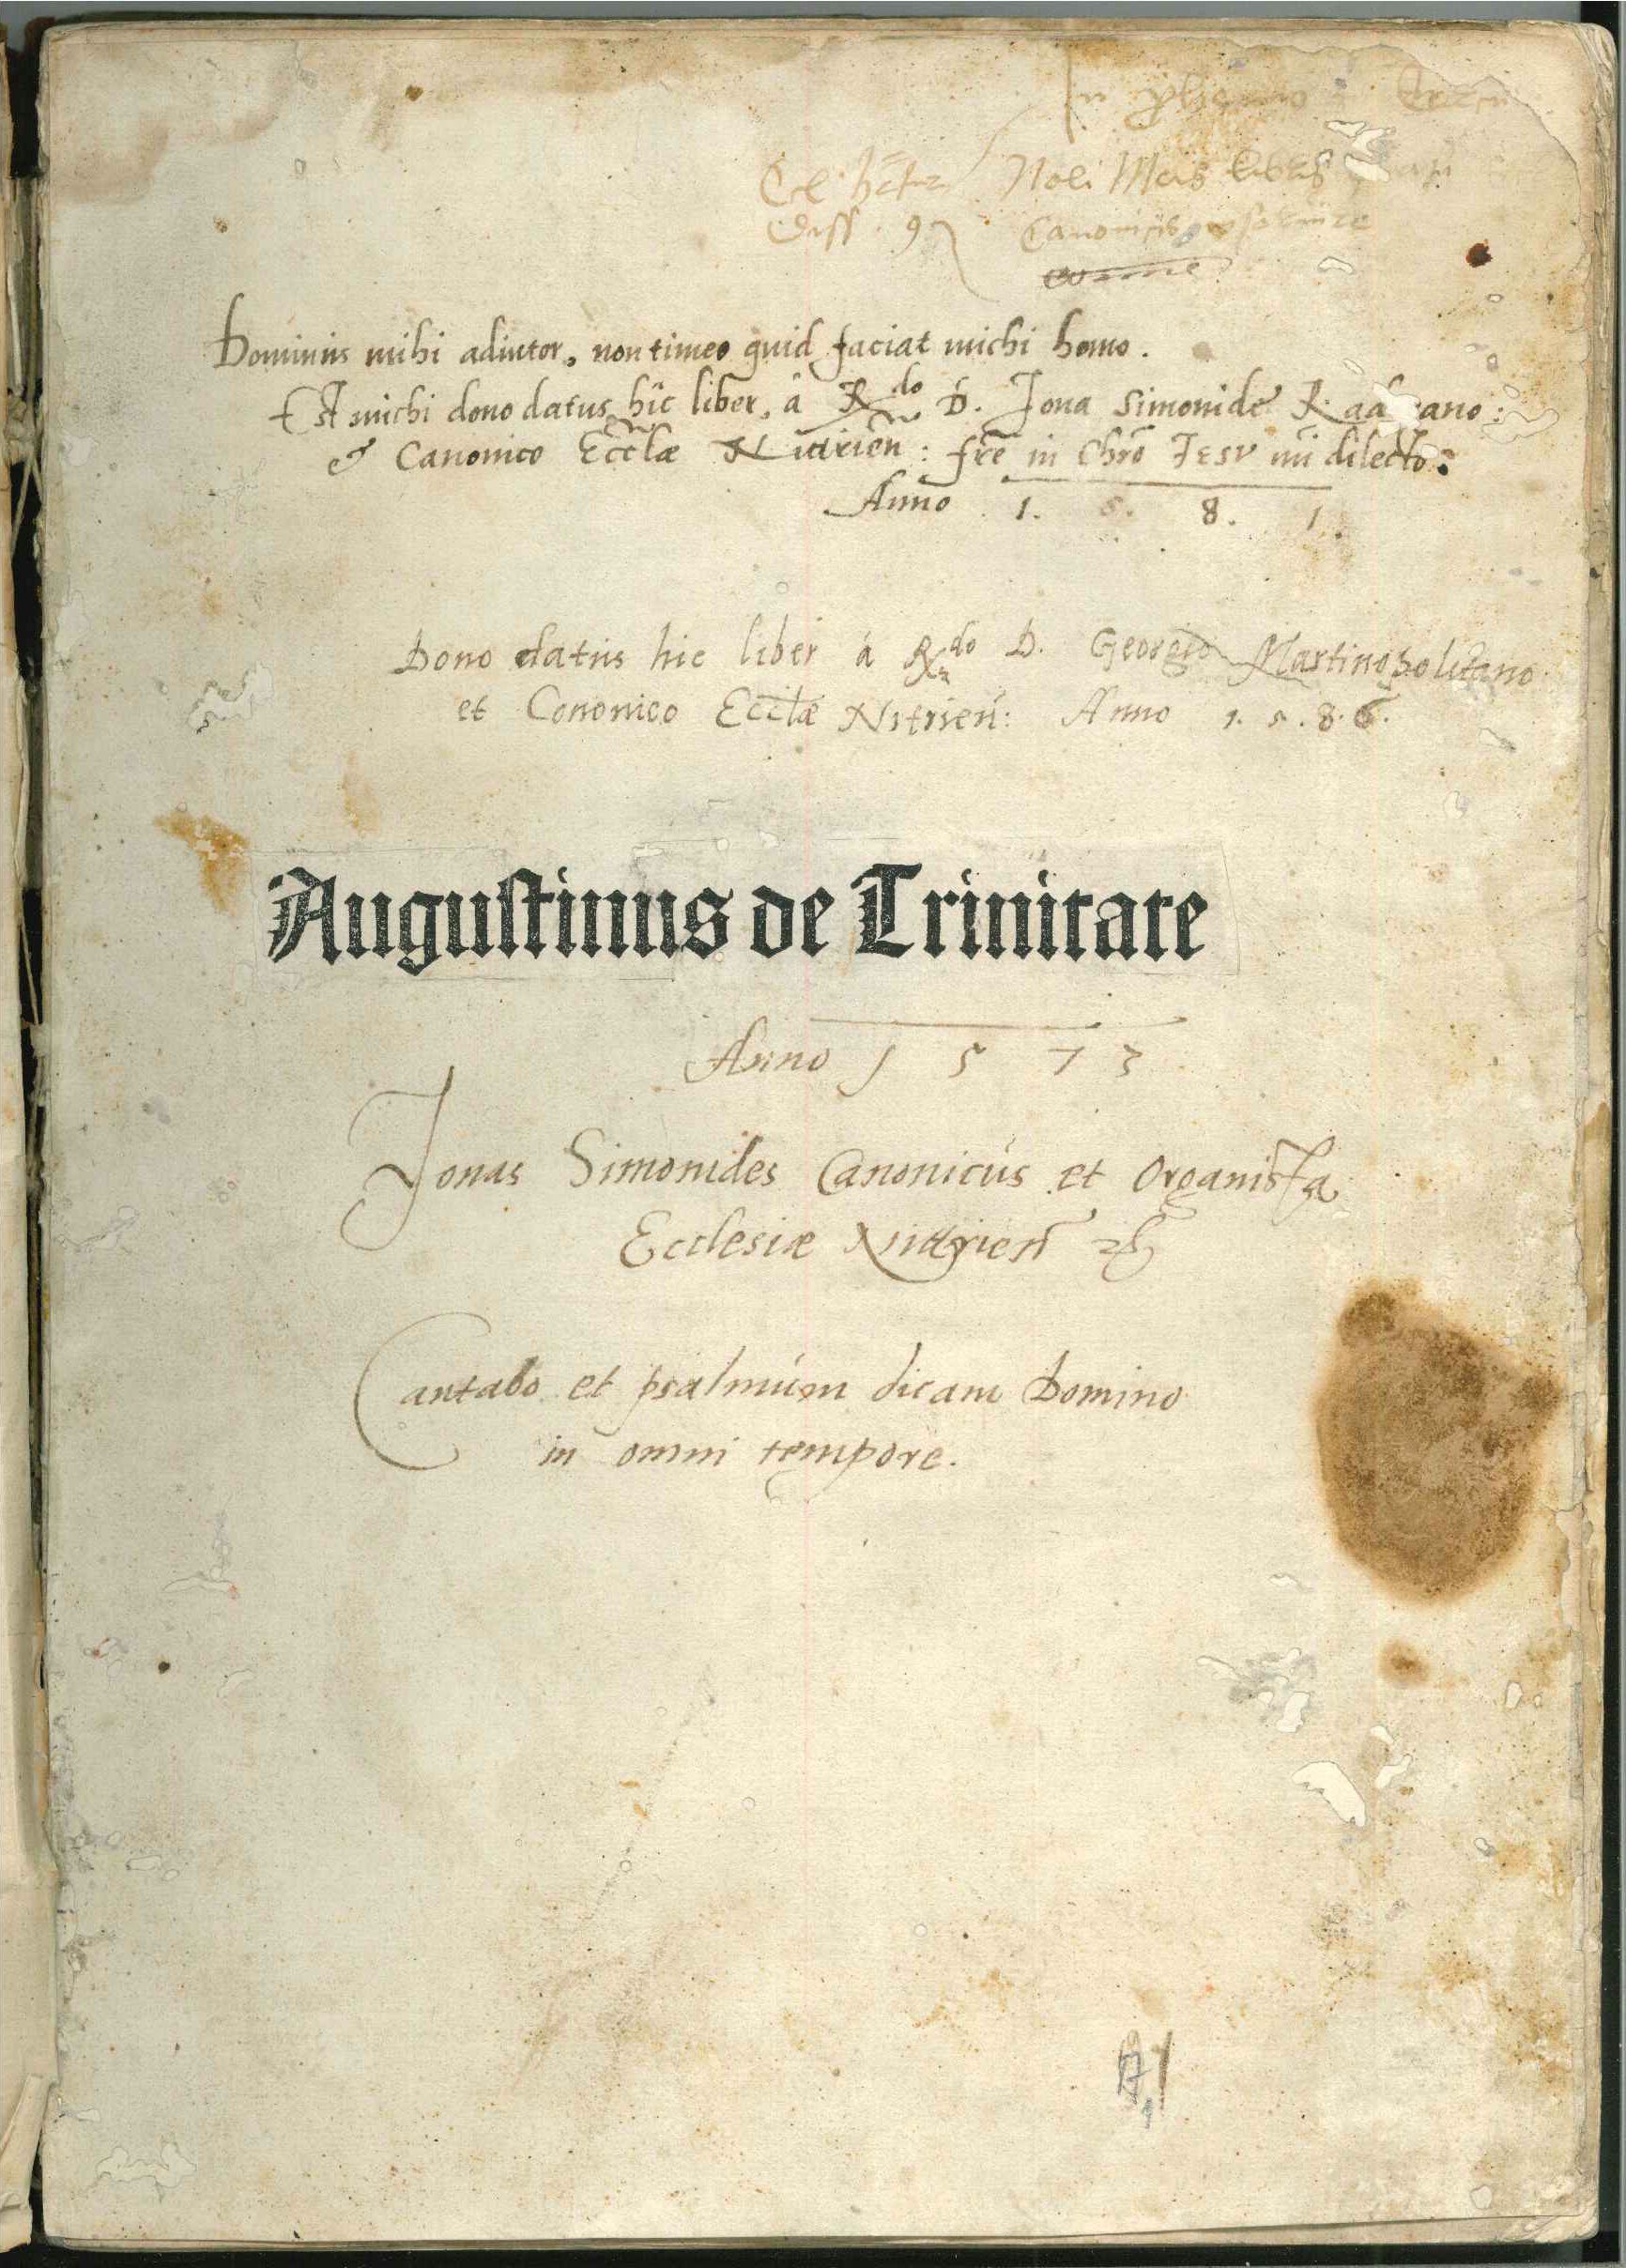 In
Noli Meis
Canonicis
Dominus mihi adiutor, non timeo quid faciat michi homo.
Est michi dono datus hic liber, a Rdo D. Jona Simonide
& Canonico Eccłæ Nittrień: fre in Chrō Jesv mi dilecto:
Anno 1. 5. 8. 1.
Dono datus hic liber á Rdo D. Georgio Martinopolitano
et Cononico Eccłæ Nitrień: Anno 1. 5. 8. 6.
Auguſtinus de Trinitate
Anno 1 5 7 3
Jonas Simonides Canonicús et Organista
Ecclesiæ Nittrień
Cantabo et psalmúm dicam Domino
in omni tempore.